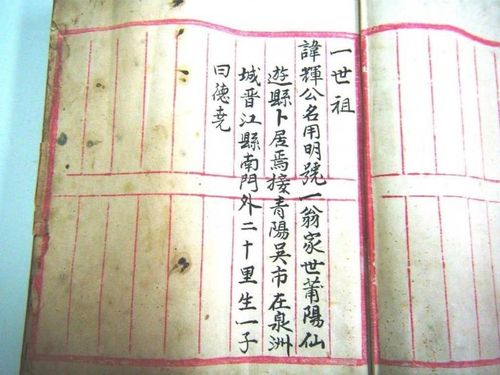 一世祖
諱輝公名用明號一翁家世莆陽仙
遊縣卜居焉接青陽吳市在泉洲
城晋江縣南門外二十里生一子
曰德堯